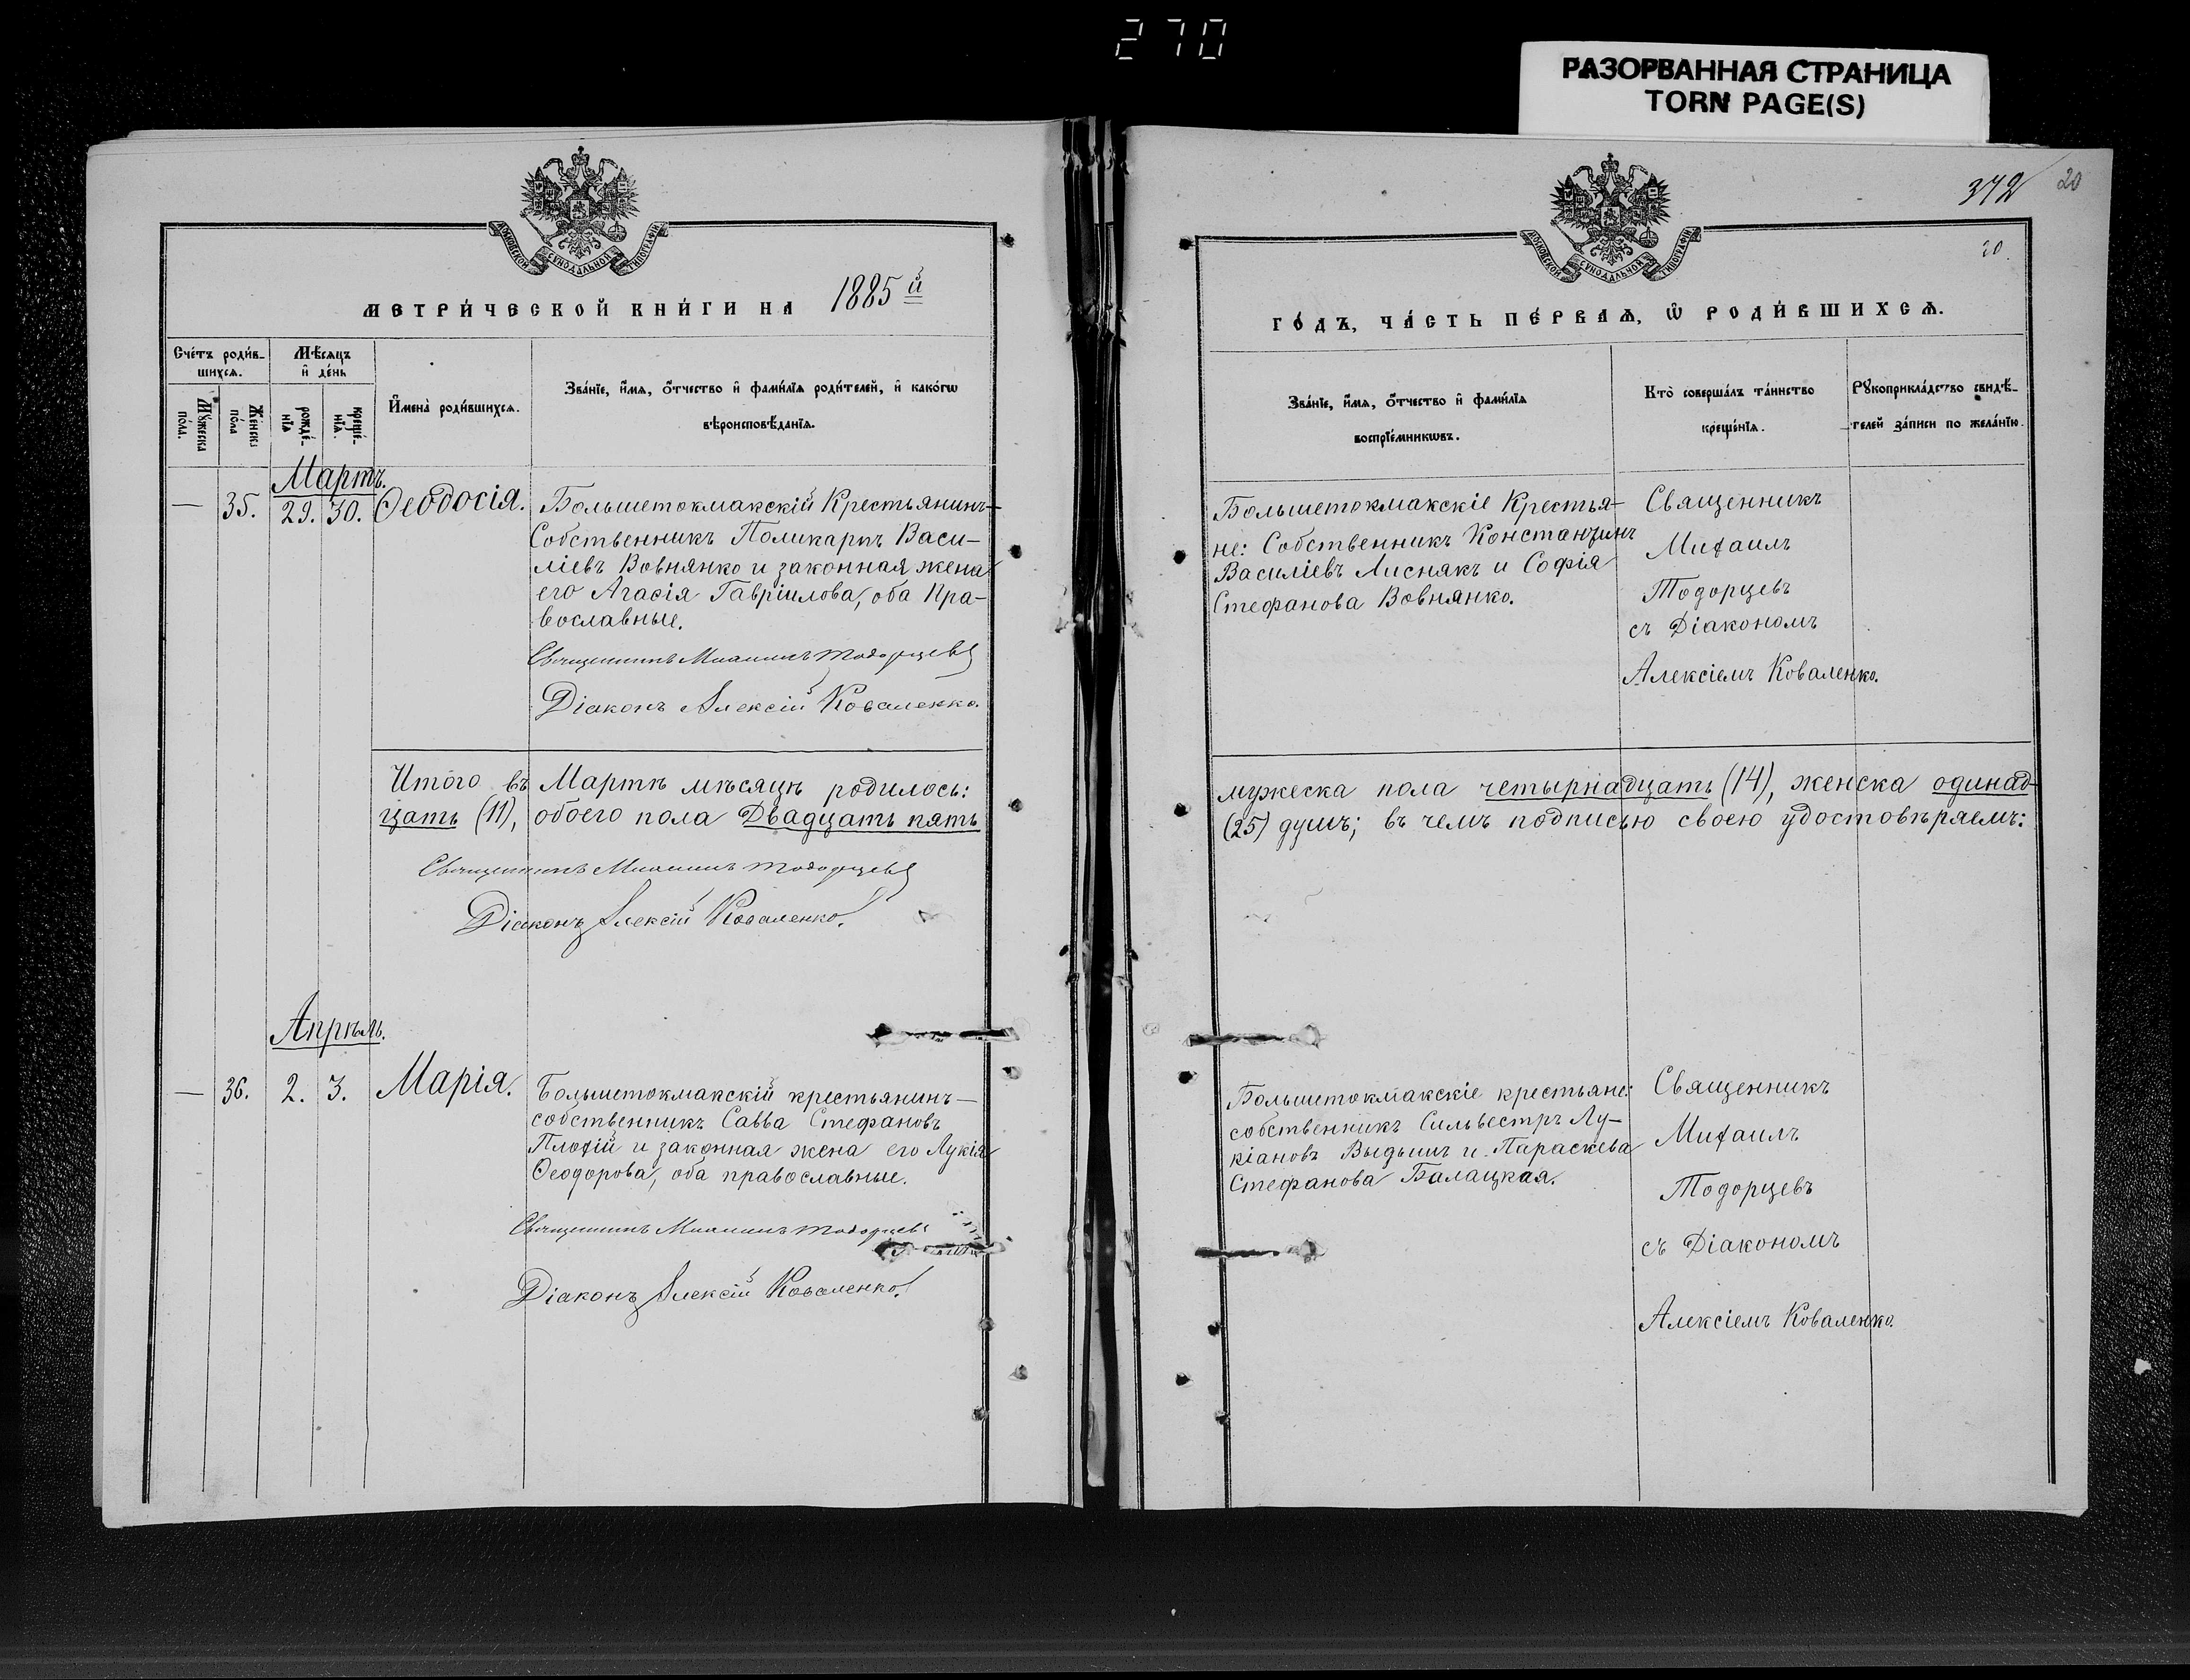 270
РАЗОРВАННАЯ СТРАНИЦА
TORN PAGE(S)
МОСКОВСКОЙ СѴНОДАЛЬНОЙ ТИПОГРАФІИ
МЕТРИ́ЧЕСКОЙ КНИ́ГИ НА 1885й
Сче́тъ роди́в-
шихсѧ.
Мꙋ́жеска
по́ла.
Же́нска
по́ла
Мѣ́сѧцъ
и҆ де́нь
рожде́-
нїѧ
креще́-
нїѧ.
И҆мена̀ роди́вшихсѧ.
Зва́нїе, и҆́мѧ, ѻ҆́тчество и҆ фами́лїѧ роди́телей, и҆ како́гѡ
вѣроисповѣ́данїѧ.
Мартъ.
— 35. 29. 30. Ѳеодосія.
Большетокмакскій Крестьянинъ-
Собственникъ Поликарпъ Васи-
ліевъ Вовнянко и законная жена
его Агасія Гавріилова, оба Пра-
вославные.
Священникъ Михаилъ Тодорцевъ
Діаконъ Алексій Коваленко.
Итого въ Мартѣ мѣсяцѣ родилось:
цать (11), обоего пола Двадцать пять
Священникъ Михаилъ Тодорцевъ
Діаконъ Алексій Коваленко.
Апрѣль.
— 36. 2. 3. Марія.
Большетокмакскій крестьянинъ-
собственникъ Савва Стефановъ
Плохій и законная жена его Лукія
Ѳеодорова, оба православные.
Священникъ Михаилъ Тодорцевъ
Діаконъ Алексій Коваленко.
372 20
20.
МОСКОВСКОЙ СѴНОДАЛЬНОЙ ТИПОГРАФІИ
ГО́ДЪ, ЧА́СТЬ ПЕ́РВАѦ, Ѡ҆ РОДИ́ВШИХСѦ.
Зва́нїе, и҆́мѧ, ѻ҆́тчество и҆ фами́лїѧ
воспрїе́мникѡвъ.
Кто̀ соверша́лъ та́инство
креще́нїѧ.
Рꙋкоприкла́дство свидѣ́-
телей за́писи по жела́нїю.
Большетокмакскіе Крестья-
не: Собственникъ Константинъ
Василіевъ Лиснякъ и Софія
Стефанова Вовнянко.
Священникъ
Михаилъ
Тодорцевъ
съ Діакономъ
Алексіемъ Коваленко.
мужеска пола четырнадцать (14), женска одинад-
(25) душъ; въ чемъ подписью своею удостовѣряемъ:
Большетокмакскіе крестьяне:
собственникъ Сильвестръ Лу-
кіановъ Выдышъ и Параскева
Стефанова Балацкая.
Священникъ
Михаилъ
Тодорцевъ
съ Діакономъ
Алексіемъ Коваленко.